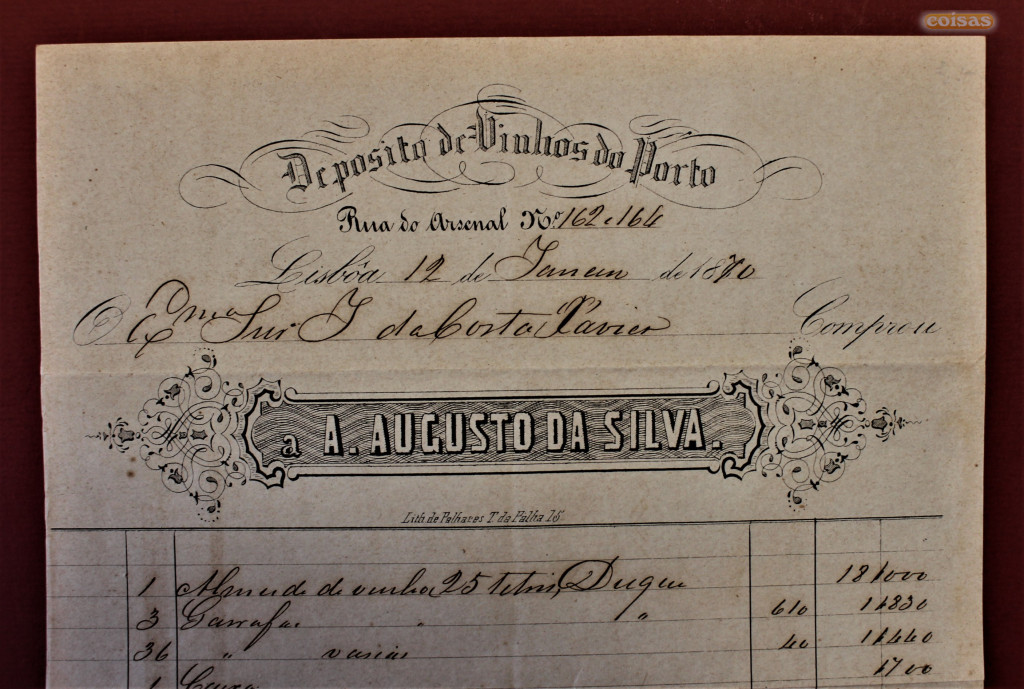 coisas
Deposito de Vinhos do Porto
Rua do Arsenal Nos. 162 e 164
Lisbôa 12 de de 1870
O Exmo Snr J da Costa Xavier Comprou
a A. AUGUSTO DA SILVA.
Lith. de Palhares T. da Palha 15
1 Almude de vinho 25 Duque 18$000
3 Garrafas " " 610 1$830
36 " vasias 40 1$440
1 Caixa $700